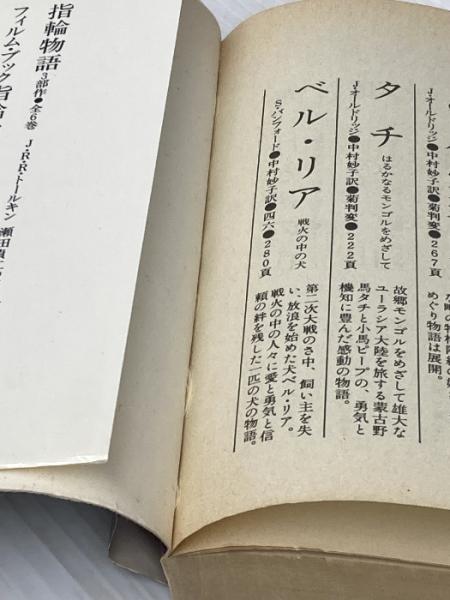 J・オールドリッジ●中村妙子訳●菊判変●267頁
めぐり物語は展開。
タチ はるかなるモンゴルをめざして
J・オールドリッジ●中村妙子訳●菊判変●222頁
故郷モンゴルをめざして雄大な
ユーラシア大陸を旅する蒙古野
馬タチと小馬ピープの、勇気と
機知に豊んだ感動の物語。
ベル・リア 戦火の中の犬
S・バンフォード●中村妙子訳●四六●280頁
第二次大戦のさ中、飼い主を失
い、放浪を始めた犬ベル・リア。
戦火の中の人々に愛と勇気と信
頼の絆を残した一匹の犬の物語。
指輪物語 3部作●全6巻
J・R・R・トールキン 瀬田貞二
フィルム・ブック指輪